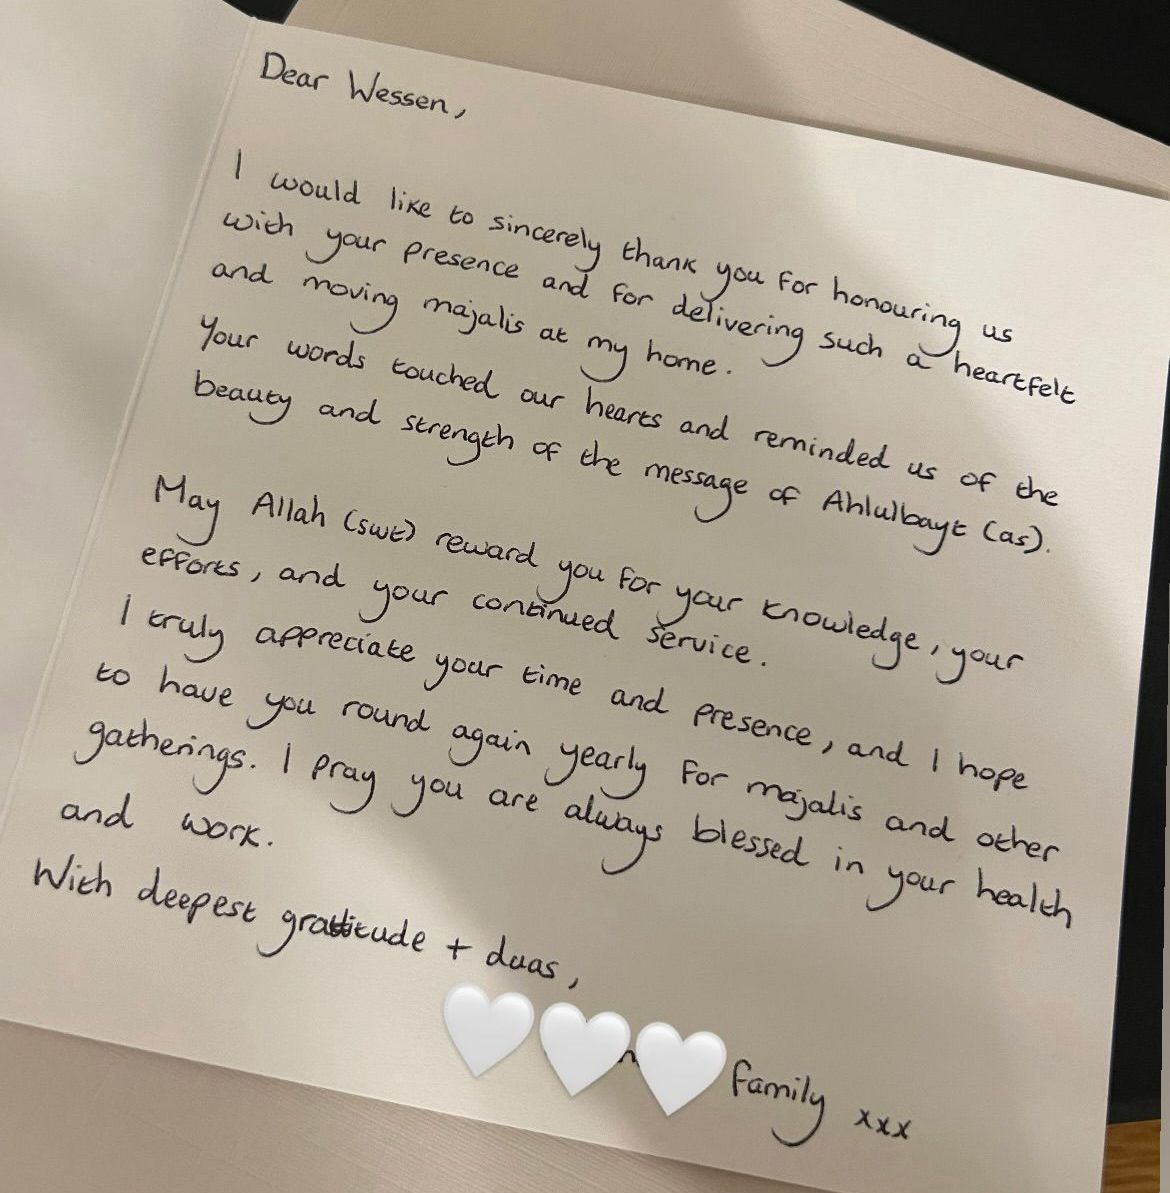 Dear Wessen,
I would like to sincerely thank you for honouring us
with your presence and for delivering such a heartfelt
and moving majalis at my home.
Your words touched our hearts and reminded us of the
beauty and strength of the message of Ahlulbayt (as).
May Allah (swt) reward you for your knowledge, your
efforts, and your continued service.
I truly appreciate your time and presence, and I hope
to have you round again yearly for majalis and other
gatherings. I pray you are always blessed in your health
and work.
With deepest gratitude + duas,
family xxx